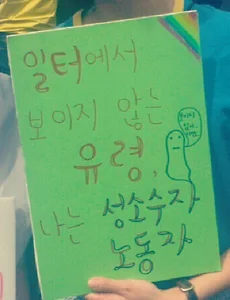 일터에서
보이지 않는
유령,
나는 성소수자
노동자